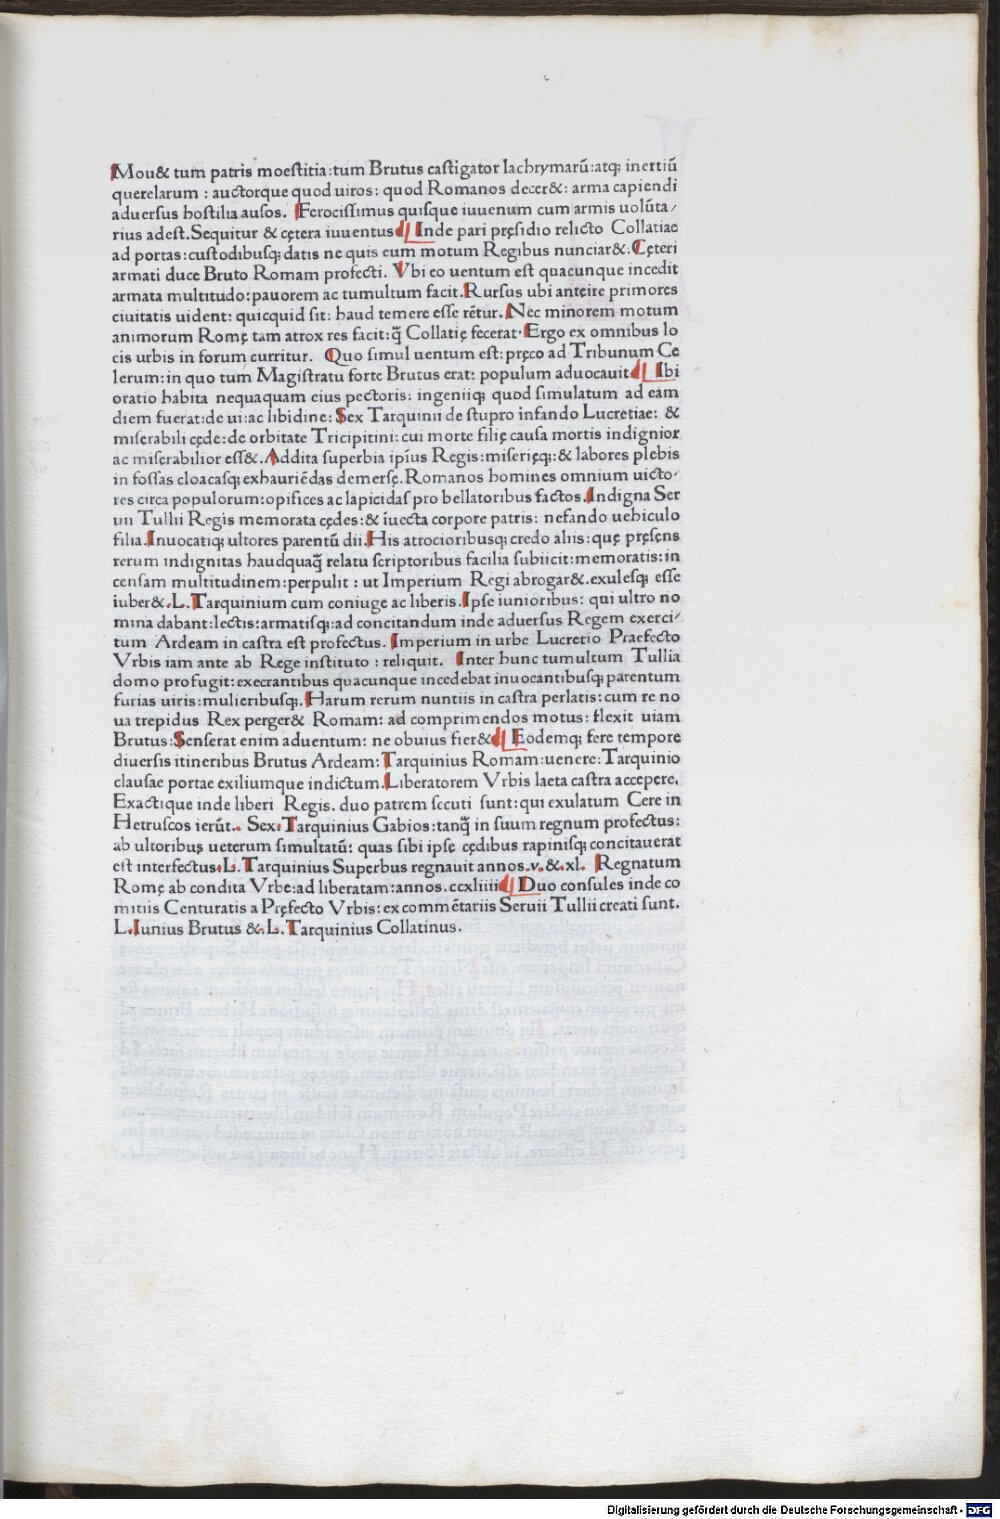 Mou& tum patris moestitia:tum Brutus castigator lachrymarū:atq; inertiū
querelarum : auctorque quod uiros: quod Romanos decer&: arma capiendi
aduersus hostilia ausos. Ferocissimus quisque iuuenum cum armis uolūta/
rius adest.Sequitur & cętera iuuentus Inde pari pręsidio relicto Collatiae
ad portas:custodibusq; datis ne quis eum motum Regibus nunciar&.Cęteri
armati duce Bruto Romam profecti. Vbi eo uentum est quacunque incedit
armata multitudo:pauorem ac tumultum facit.Rursus ubi anteire primores
ciuitatis uident: quicquid sit: haud temere esse rētur. Nec minorem motum
animorum Romę tam atrox res facit:q̄ Collatię fecerat. Ergo ex omnibus lo
cis urbis in forum curritur. Quo simul uentum est: pręco ad Tribunum Ce
lerum:in quo tum Magistratu forte Brutus erat: populum aduocauit Ibi
oratio habita nequaquam eius pectoris: ingeniiq; quod simulatum ad eam
diem fuerat:de ui:ac libidine: Sex Tarquinii de stupro infando Lucretiae: &
miserabili cęde:de orbitate Tricipitini:cui morte filię causa mortis indignior
ac miserabilior ess&.Addita superbia ipsius Regis:miserięq;:& labores plebis
in fossas cloacasq; exhauriēdas demersę.Romanos homines omnium uicto/
res circa populorum:opifices ac lapicidas pro bellatoribus factos.Indigna Ser
uii Tullii Regis memorata cędes:& īuecta corpore patris: nefando uehiculo
filia.Inuocatiq; ultores parentū dii.His atrocioribusq; credo aliis:quę pręsens
rerum indignitas haudquaq̄ relatu scriptoribus facilia subiicit:memoratis:in
censam multitudinem:perpulit : ut Imperium Regi abrogar&.exulesq; esse
iuber&.L.Tarquinium cum coniuge ac liberis.Ipse iunioribus: qui ultro no
mina dabant:lectis:armatisq;:ad concitandum inde aduersus Regem exerci/
tum Ardeam in castra est profectus. Imperium in urbe Lucretio Praefecto
Vrbis iam ante ab Rege instituto : reliquit. Inter hunc tumultum Tullia
domo profugit:execrantibus quacunque incedebat inuocantibusq; parentum
furias uiris:mulieribusq;.Harum rerum nuntiis in castra perlatis:cum re no
ua trepidus Rex perger& Romam: ad comprimendos motus: flexit uiam
Brutus:Senserat enim aduentum: ne obuius fier& Eodemq; fere tempore
diuersis itineribus Brutus Ardeam: Tarquinius Romam:uenere:Tarquinio
clausae portae exiliumque indictum.Liberatorem Vrbis laeta castra accepere.
Exactique inde liberi Regis. duo patrem secuti sunt:qui exulatum Cere in
Hetruscos ierūt. Sex.Tarquinius Gabios:tanq̄ in suum regnum profectus:
ab ultoribus ueterum simultatū: quas sibi ipse cędibus rapinisq; concitauerat
est interfectus.L.Tarquinius Superbus regnauit annos.v.&.xl. Regnatum
Romę ab condita Vrbe:ad liberatam:annos.ccxliiii Duo consules inde co
mitiis Centuratis a Pręfecto Vrbis:ex commētariis Seruii Tullii creati sunt.
L.Iunius Brutus &.L.Tarquinius Collatinus.
Digitalisierung gefördert durch die Deutsche Forschungsgemeinschaft - DFG